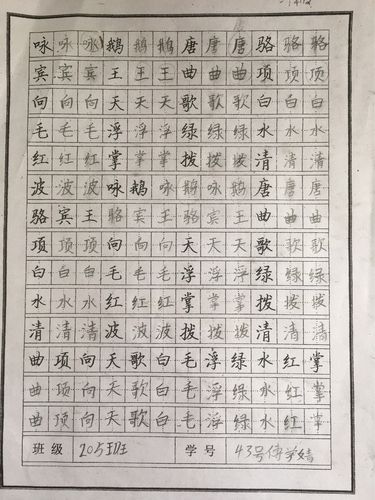 咏咏咏鹅鹅鹅唐唐唐骆骆骆
宾宾宾王王王曲曲曲项项项
向向向天天天歌歌歌白白白
毛毛毛浮浮浮绿绿绿水水水
红红红掌掌掌拨拨拨清清清
波波波咏鹅咏鹅咏鹅唐唐唐
骆宾王骆宾王骆宾王曲曲曲
项项项向向向天天天歌歌歌
白白白毛毛毛浮浮浮绿绿绿
水水水红红红掌掌掌拨拨拨
清清清波波波拨拨拨清清清
曲项向天歌白毛浮绿水红掌
曲项向天歌白毛浮绿水红掌
曲项向天歌白毛浮绿水红掌
班级 205班 学号 43号傅学婧